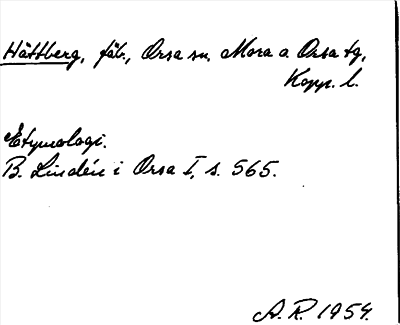 Hättberg, fäb., Orsa sn, Mora o. Orsa tg,
Kopp. l.
Etymologi.
B. Lindén i Orsa I, s. 565.
A. R. 1954.